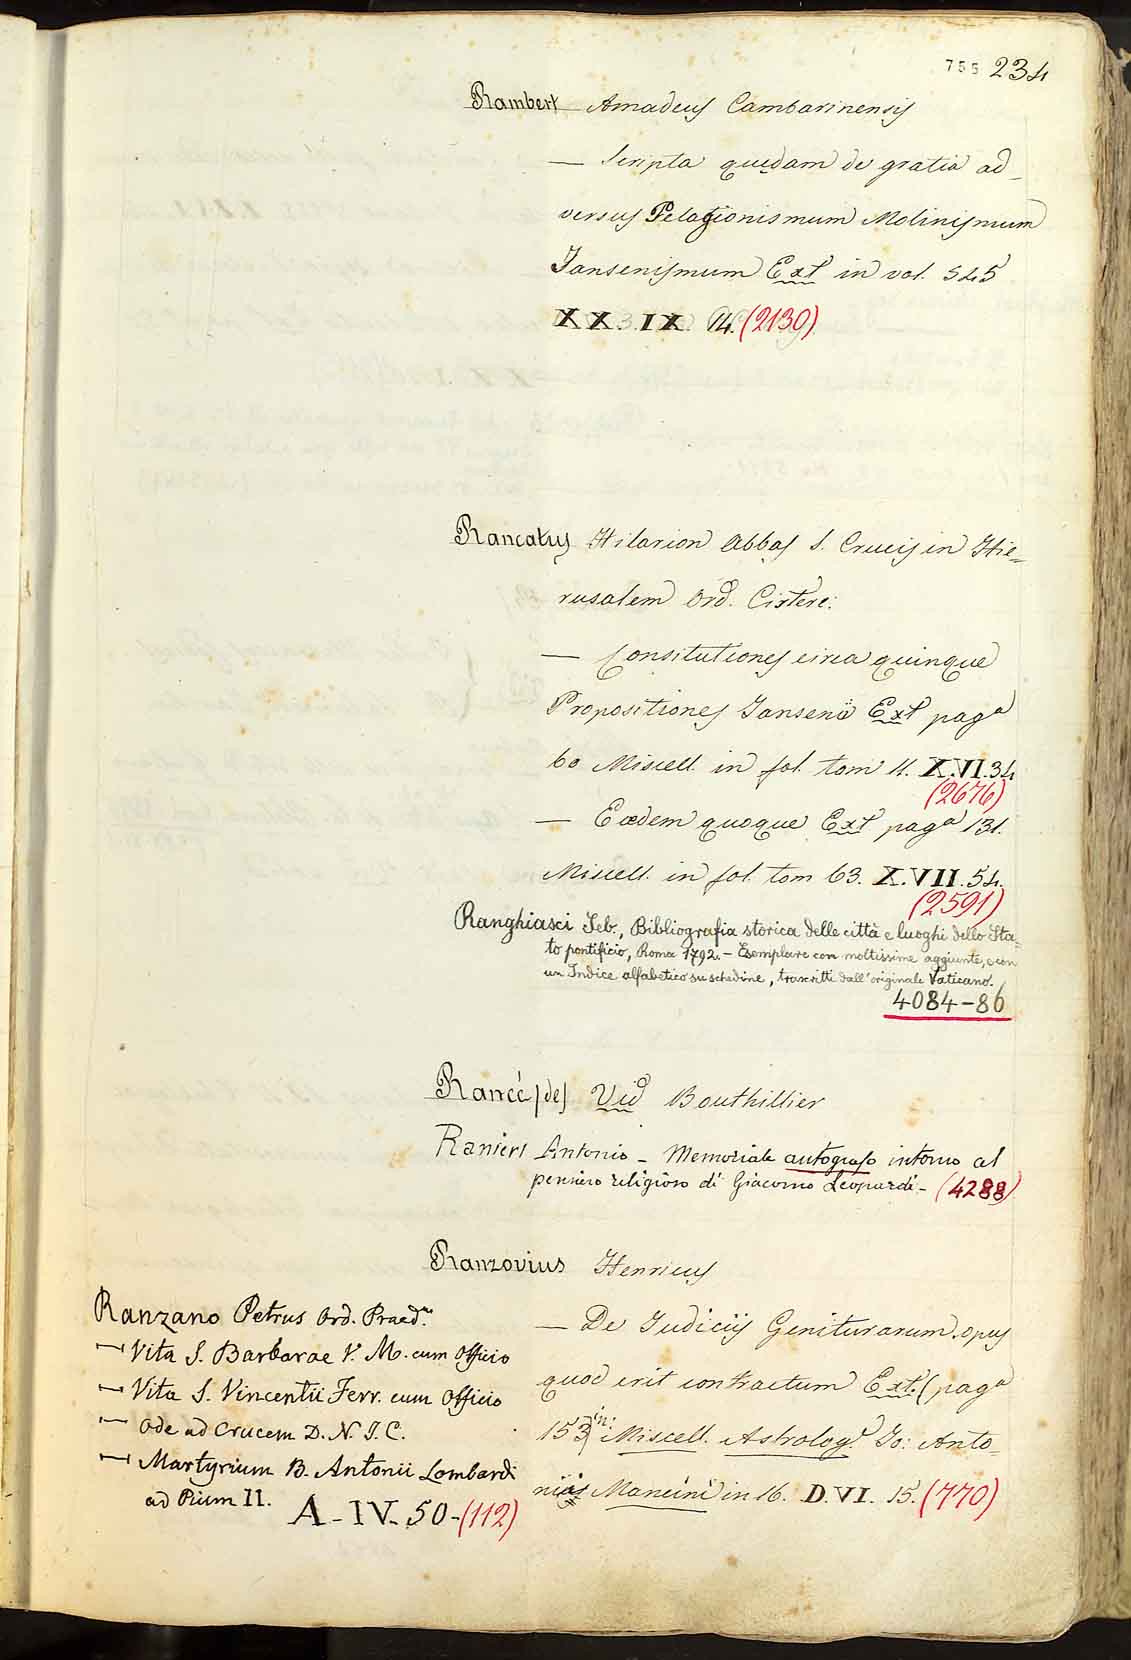 755 234
Rambert Amadeus Cambarinensis
— Scripta quędam de gratia ad_
versus Pelagionismum Molinismum
Jansenismum Ext in vol. 545
XX.IX. 14. (2130)
Rancatus Hilarion Abbas S. Crucis in Hie_
rusalem Ord. Cisterc:
— Consitutiones circa quinque
Propositiones Jansenii Ext pagª
60 Miscell. in fol. tom 11. X.VI.34
(2676)
— Eædem quoque Ext pagª 131.
Miscell. in fol. tom 63. X.VII.54.
(2591)
Ranghiasci Seb., Bibliografia storica delle città e luoghi dello Sta-
to pontificio, Roma 1792. — Esemplare con moltissime aggiunte, e con
un Indice alfabetico su schedine, trascritti dall'originale Vaticano.
4084-86
Rancé (de) Vid Bouthillier
Ranieri Antonio - Memoriale autografo intorno al
pensiero religioso di Giacomo Leopardi - (4288)
Ranzovius Henricus
— De Judiciis Geniturarum opus
quod erit contractum Ext. (pagª
153) in: Miscell. Astrolog. Jo: Anto_
nii Mancini in 16. D.VI. 15. (770)
Ranzano Petrus Ord. Praed.
— Vita S. Barbarae V. M. cum Officio
— Vita S. Vincentii Ferr. cum Officio
— Ode ad Crucem D. N. J. C.
— Martyrium B. Antonii Lombardi
ad Pium II.
A-IV-50-(112)